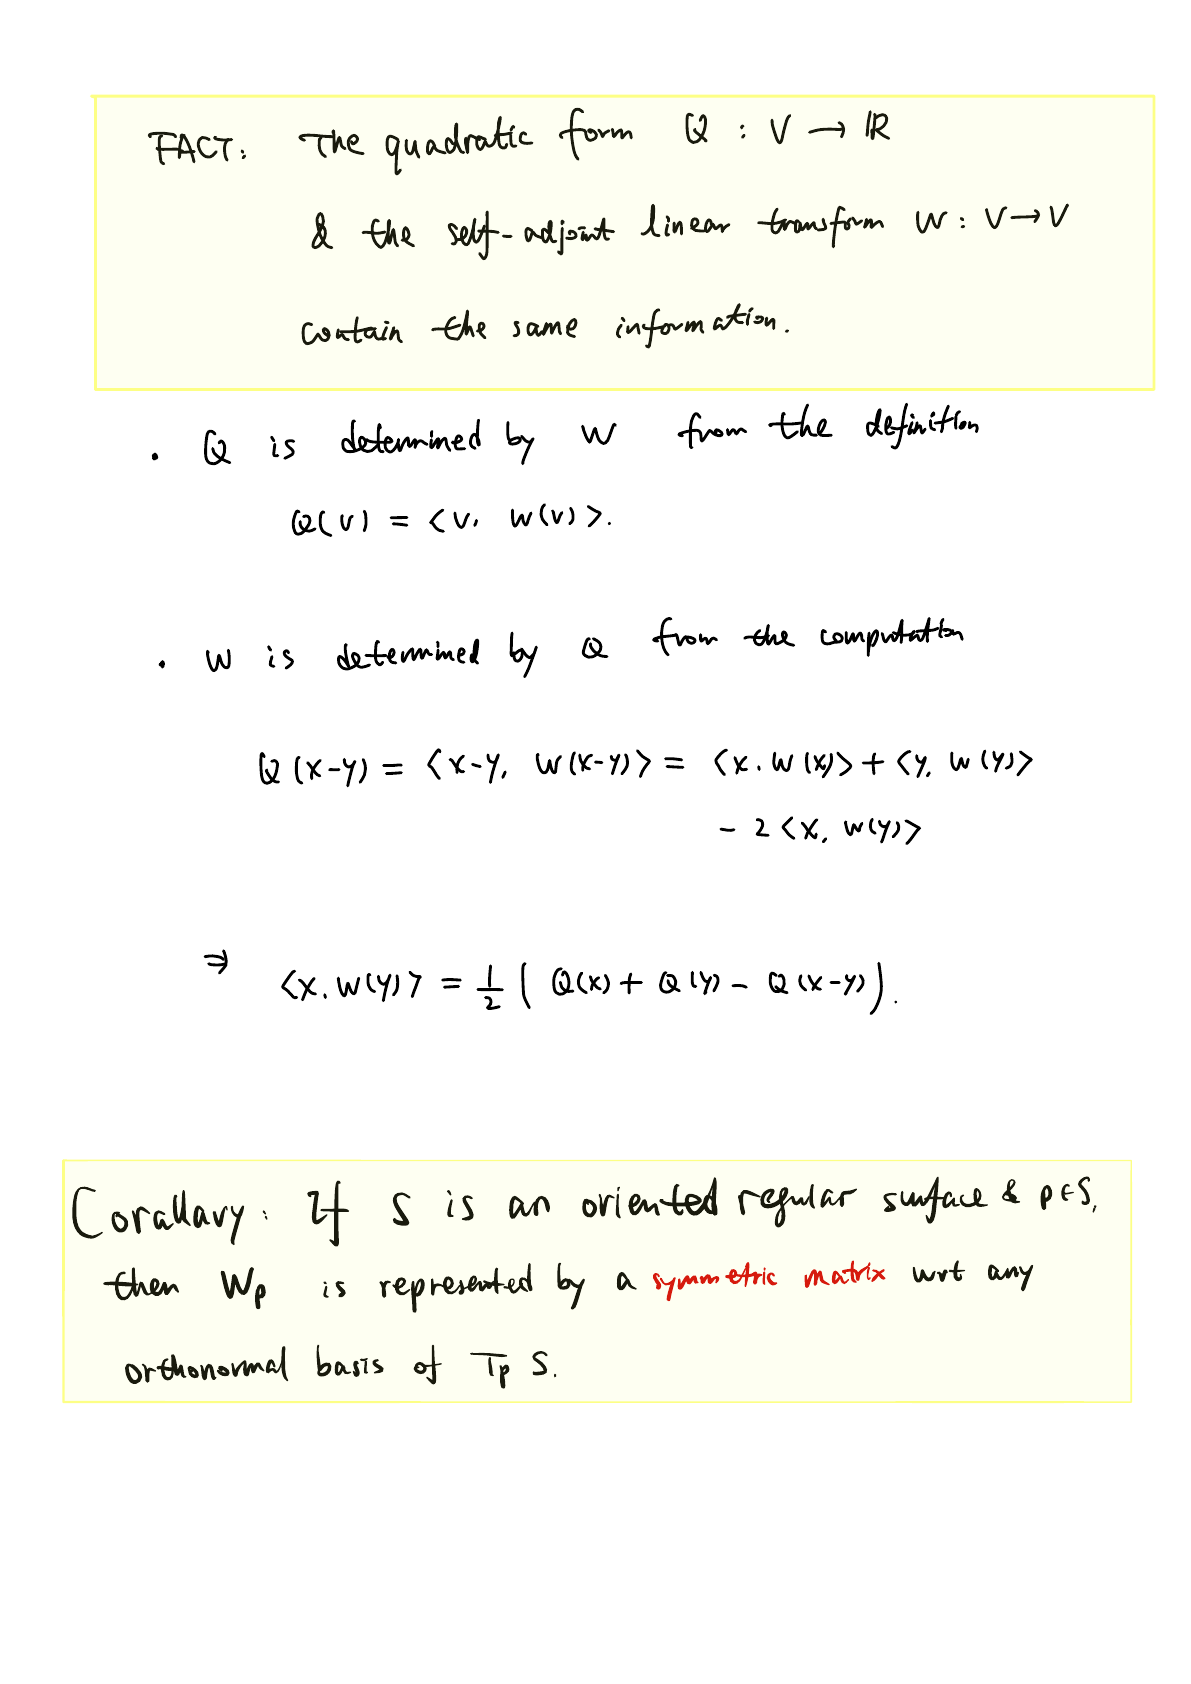 FACT: The quadratic form Q : V → ℝ
& the self-adjoint linear transform W : V → V
contain the same information.
· Q is determined by W from the definition
Q(v) = <v, W(v)>.
· W is determined by Q from the computation
Q(x-y) = <x-y, W(x-y)> = <x, W(x)> + <y, W(y)>
- 2<x, W(y)>
⇒ <x, W(y)> = 1/2 ( Q(x) + Q(y) - Q(x-y) ).
Corallary: If S is an oriented regular surface & p∈S,
then Wp is represented by a symmetric matrix wrt any
orthonormal basis of Tp S.